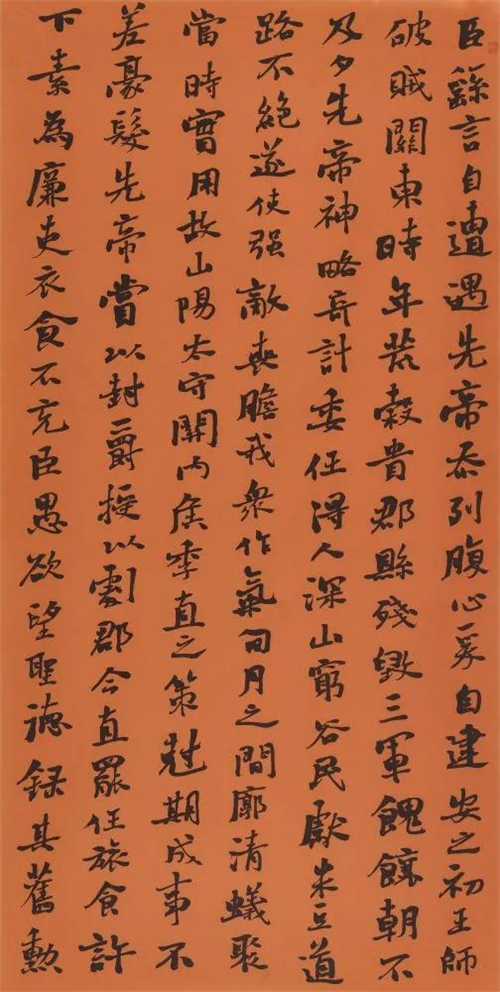 臣繇言自遭遇先帝忝列腹心爰自建安之初王師
破賊關東時年荒穀貴郡縣殘毀三軍餽饟朝不
及夕先帝神略奇計委任得人深山窮谷民獻米豆道
路不絕遂使强敵喪膽我衆作氣旬月之間廓清蟻聚
當時實用故山陽太守關内侯季直之策尅期成事不
差豪髮先帝賞以封爵授以劇郡今直罷任旅食許
下素為廉吏衣食不充臣愚欲望聖德録其舊勳